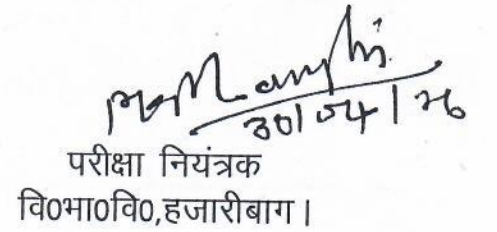 30/04/26
परीक्षा नियंत्रक
वि०भा०वि०,हजारीबाग।